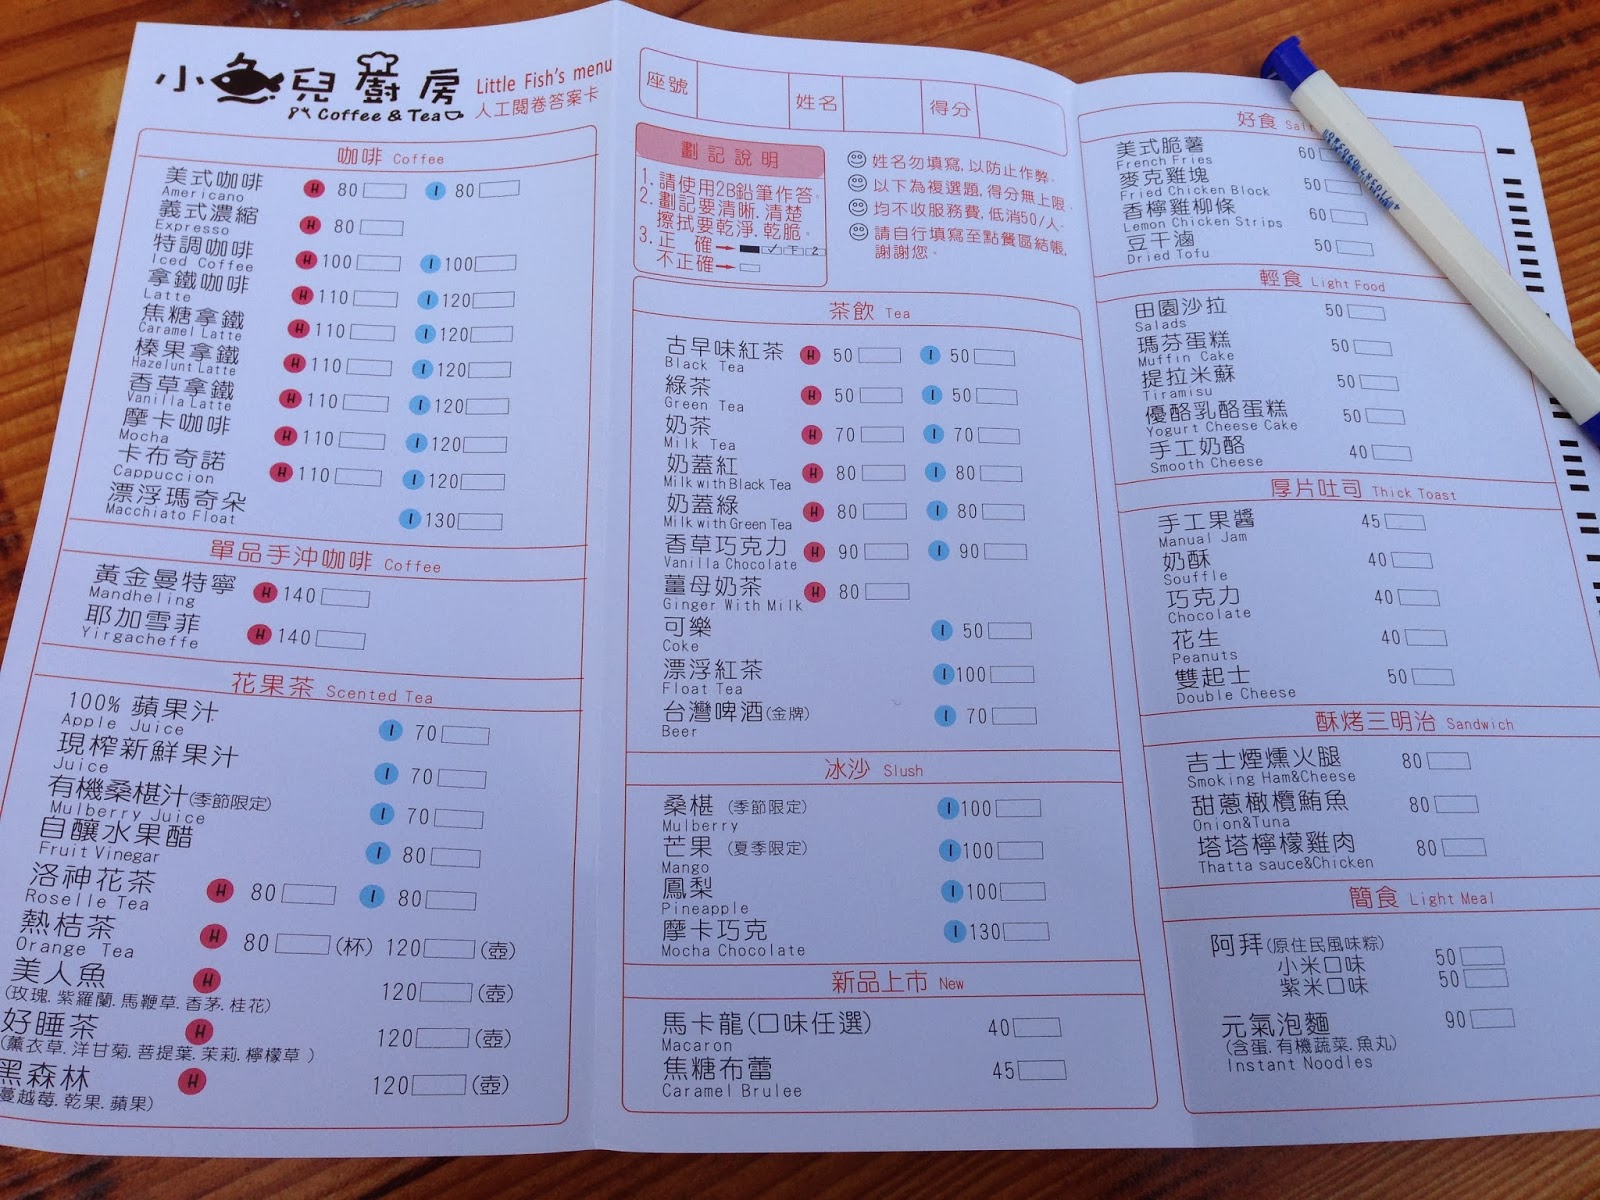 小魚兒廚房
Coffee & Tea
Little Fish's menu
人工閱卷答案卡
咖啡 Coffee
美式咖啡 H 80 I 80
Americano
義式濃縮 H 80
Expresso
特調咖啡 H 100 I 100
Iced Coffee
拿鐵咖啡 H 110 I 120
Latte
焦糖拿鐵 H 110 I 120
Caramel Latte
榛果拿鐵 H 110 I 120
Hazelunt Latte
香草拿鐵 H 110 I 120
Vanilla Latte
摩卡咖啡 H 110 I 120
Mocha
卡布奇諾 H 110 I 120
Cappuccion
漂浮瑪奇朵 I 130
Macchiato Float
單品手沖咖啡 Coffee
黃金曼特寧 H 140
Mandheling
耶加雪菲 H 140
Yirgacheffe
花果茶 Scented Tea
100% 蘋果汁 I 70
Apple Juice
現榨新鮮果汁 I 70
Juice
有機桑椹汁(季節限定) I 70
Mulberry Juice
自釀水果醋 I 80
Fruit Vinegar
洛神花茶 H 80 I 80
Roselle Tea
熱桔茶 H 80 (杯) 120 (壺)
Orange Tea
美人魚 H 120 (壺)
(玫瑰.紫羅蘭.馬鞭草.香茅.桂花)
好睡茶 H 120 (壺)
(薰衣草.洋甘菊.菩提葉.茉莉.檸檬草)
黑森林 H 120 (壺)
蔓越莓.乾果.蘋果)
座號 姓名 得分
劃記說明
1.請使用2B鉛筆作答。
2.劃記要清晰.清楚
擦拭要乾淨.乾脆。
3.正 確→
不正確→
姓名勿填寫,以防止作弊。
以下為複選題,得分無上限。
均不收服務費,低消50/人。
請自行填寫至點餐區結帳,
謝謝您。
茶飲 Tea
古早味紅茶 H 50 I 50
Black Tea
綠茶 H 50 I 50
Green Tea
奶茶 H 70 I 70
Milk Tea
奶蓋紅 H 80 I 80
Milk with Black Tea
奶蓋綠 H 80 I 80
Milk with Green Tea
香草巧克力 H 90 I 90
Vanilla Chocolate
薑母奶茶 H 80
Ginger With Milk
可樂 I 50
Coke
漂浮紅茶 I 100
Float Tea
台灣啤酒(金牌) I 70
Beer
冰沙 Slush
桑椹 (季節限定) I 100
Mulberry
芒果 (夏季限定) I 100
Mango
鳳梨 I 100
Pineapple
摩卡巧克 I 130
Mocha Chocolate
新品上市 New
馬卡龍(口味任選) 40
Macaron
焦糖布蕾 45
Caramel Brulee
好食
美式脆薯 60
French Fries
麥克雞塊 50
Fried Chicken Block
香檸雞柳條 60
Lemon Chicken Strips
豆干滷 50
Dried Tofu
輕食 Light Food
田園沙拉 50
Salads
瑪芬蛋糕 50
Muffin Cake
提拉米蘇 50
Tiramisu
優酪乳酪蛋糕 50
Yogurt Cheese Cake
手工奶酪 40
Smooth Cheese
厚片吐司 Thick Toast
手工果醬 45
Manual Jam
奶酥 40
Souffle
巧克力 40
Chocolate
花生 40
Peanuts
雙起士 50
Double Cheese
酥烤三明治 Sandwich
吉士煙燻火腿 80
Smoking Ham&Cheese
甜蔥橄欖鮪魚 80
Onion&Tuna
塔塔檸檬雞肉 80
Thatta sauce&Chicken
簡食 Light Meal
阿拜(原住民風味粽)
小米口味 50
紫米口味 50
元氣泡麵 90
(含蛋.有機蔬菜.魚丸)
Instant Noodles